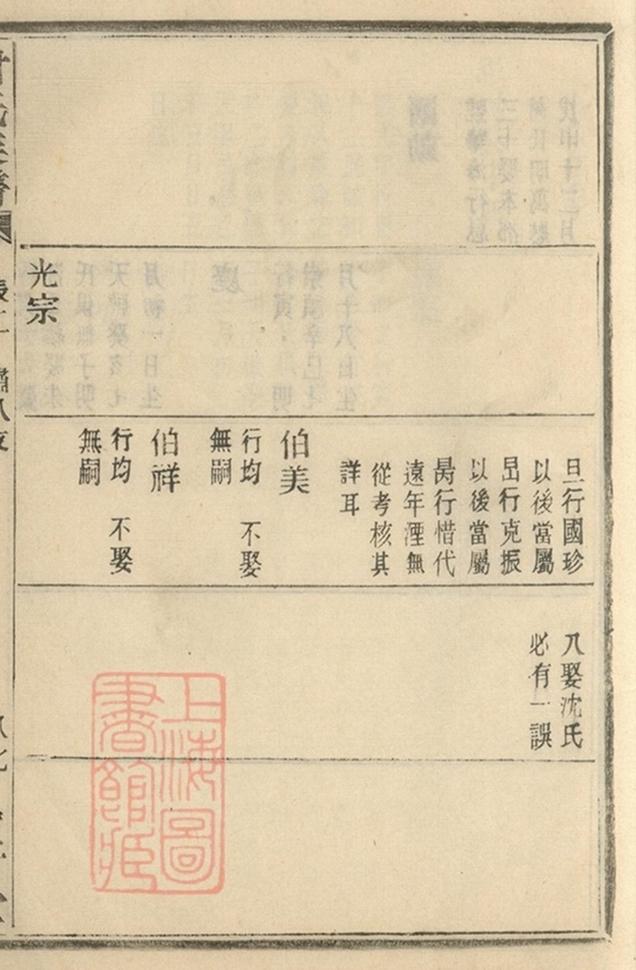 光宗
旦行國珍
以後當屬
昂行克振
以後當屬
昺行惜代
遠年湮無
從考核其
詳耳
伯美
行均 不娶
無嗣
伯祥
行均 不娶
無嗣
八娶沈氏
必有一誤
上海圖
書館藏